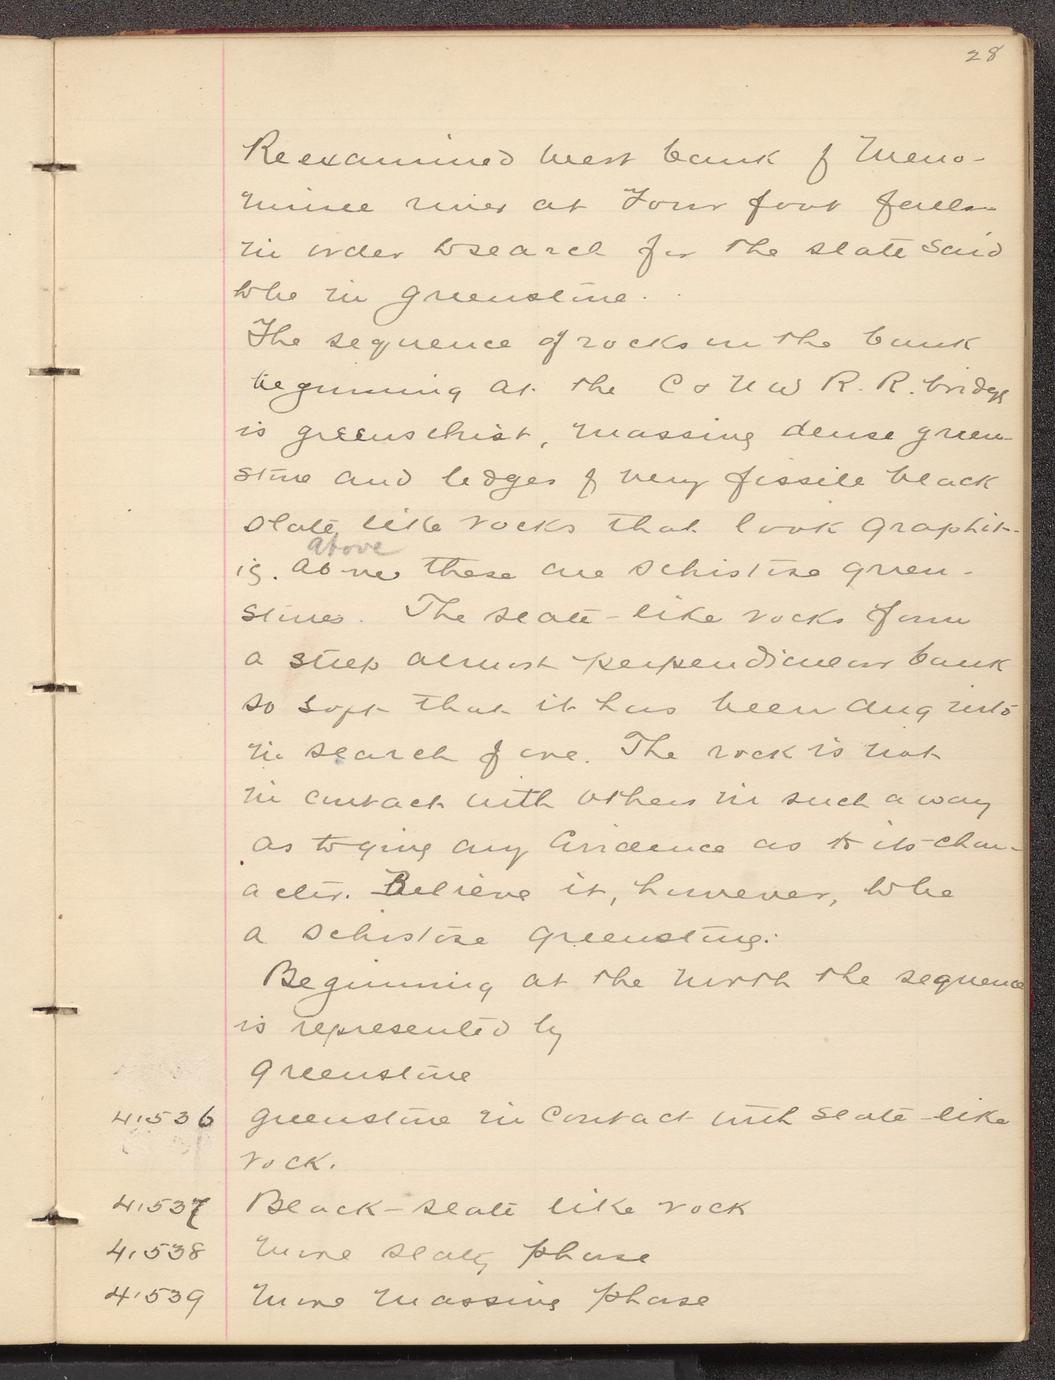 28
Reexamined west bank of Meno-
minee river at Four foot falls
in order to search for the slate said
to be in greenstone.
The sequence of rocks in the bank
beginning at the C & N W R. R. bridge
is greenschist, massive dense green-
stone and ledges of very fissile black
slate like rocks that look graphit-
above
ic. Above these are schistose green-
stones. The slate-like rocks form
a steep almost perpendicular bank
so soft that it has been dug into
in search of ore. The rock is not
in contact with others in such a way
as to give any evidence as to its char-
acter. Believe it, however, to be
a schistose greenstone.
Beginning at the north the sequence
is represented by
Greenstone
41536 greenstone in contact with slate-like
rock.
41537 Black-slate like rock
41538 More slaty phase
41539 More massive phase